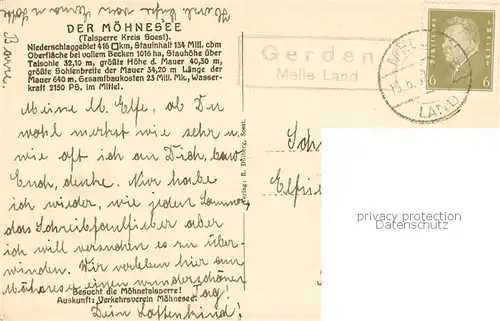 DER MÖHNESEE
(Talsperre Kreis Soest).
Niederschlaggebiet 416 □km, Stauinhalt 134 Mill. cbm
Oberfläche bei vollem Becken 1016 ha, Stauhöhe über
Talsohle 32,10 m, größte Höhe d. Mauer 40,30 m,
größte Sohlenbreite der Mauer 34,20 m Länge der
Mauer 640 m, Gesamtbaukosten 23 Mill. Mk., Wasser-
kraft 2150 PS. im Mittel.
Meine M. Elfe, ob Du
wohl merkst wie sehr u.
wie oft ich an Dich, bzw
Euch, denke. Nur habe
ich wieder, wie jeden Sommer,
das Schreibfaultfieber aber
ich will versuchen es zu über-
winden. Wir verleben hier am
Möhnesee einen wunderschönen
Tag!
Besucht die Möhnetalsperre!
Auskunft: Verkehrsverein Möhnesee.
Dein
Verlag: R. Soest.
Gerden
Melle Land
MEL
LAND
6 6
Sch
Elfri
privacy protection
Datenschutz